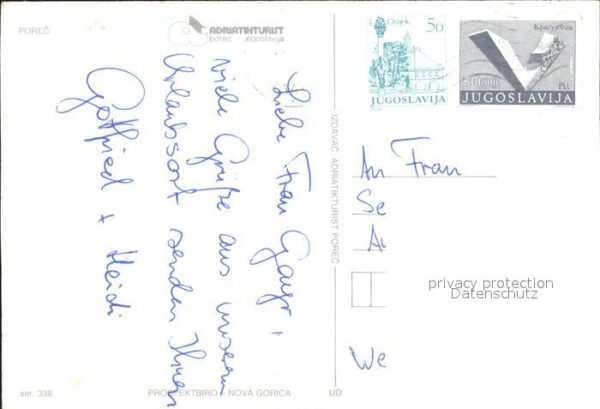 POREČ
ADRIATIKTURIST
poreč jugoslavija
Liebe Frau Gayr,
viele Grüße aus unserem
Urlaubsort senden Ihnen
Gotfried + Heidi
IZDAVAČ ADRIATIKTURIST POREČ
Osijek
5.0
JUGOSLAVIJA
Крагујевац
50.00
JUGOSLAVIJA
An Frau
Se
We
privacy protection
Datenschutz
ser. 338
PROSPEKTBIRO - NOVA GORICA
UD